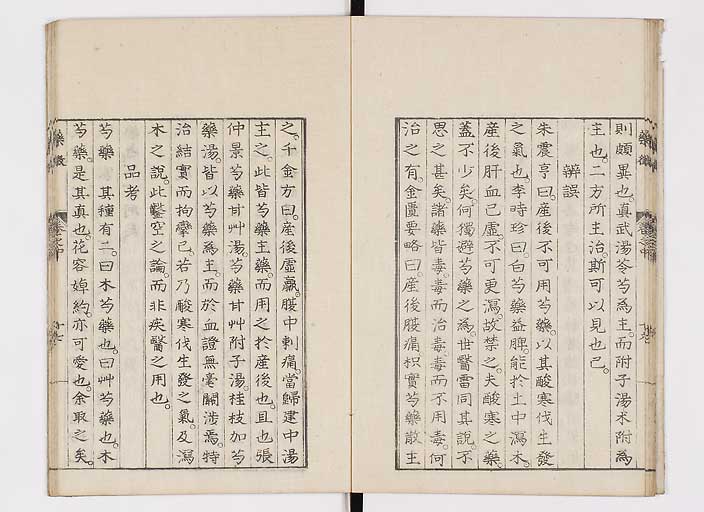 則頗異也。真武湯苓芍爲主。而附子湯朮附爲
主也。二方所主治。斯可以見也已。
辨誤
朱震亨曰。産後不可用芍藥。以其酸寒伐生發
之氣也。李時珍曰。白芍藥益脾。能於土中瀉木。
産後肝血已虛。不可更瀉。故禁之。夫酸寒之藥。
蓋不少矣。何獨避芍藥之爲。世醫雷同其說。不
思之甚矣。諸藥皆毒。毒而治毒。毒而不用毒。何
治之有。金匱要略曰。産後腹痛。枳實芍藥散主
之。千金方曰。産後虛羸。腹中刺痛。當歸建中湯
主之。此皆芍藥主藥。而用之於産後也。且也張
仲景芍藥甘艸湯。芍藥甘艸附子湯。桂枝加芍
藥湯。皆以芍藥爲主。而於血證無毫關涉焉。特
治結實而拘攣已。若乃酸寒伐生發之氣。及瀉
木之說。此鑿空之論。而非疾醫之用也。
品考
芍藥 其種有二。曰木芍藥也。曰艸芍藥也。木
芍藥。是其真也。花容婥約。亦可愛也。余取之矣。
藥徵